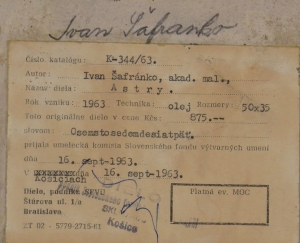 Ivan Šafranko
Číslo katalógu: K-344/63.
Autor: Ivan Šafránko, akad. mal.,
Názov diela: Astry.
Rok vzniku: 1963 Technika: olej Rozmery: 50x35
Toto originálne dielo v cene Kčs: 875.--
slovom: Osemstosedemdesiatpäť.
prijala umelecká komisia Slovenského fondu výtvarných umení
dňa 16. sept-1963.
v Košiciach dňa 16. sept-1963.
Dielo, podnik SFVU
Štúrova ul. 1/a
Bratislava
Košice
Platná ev. MOC
ST 02 - 5779-2715-61